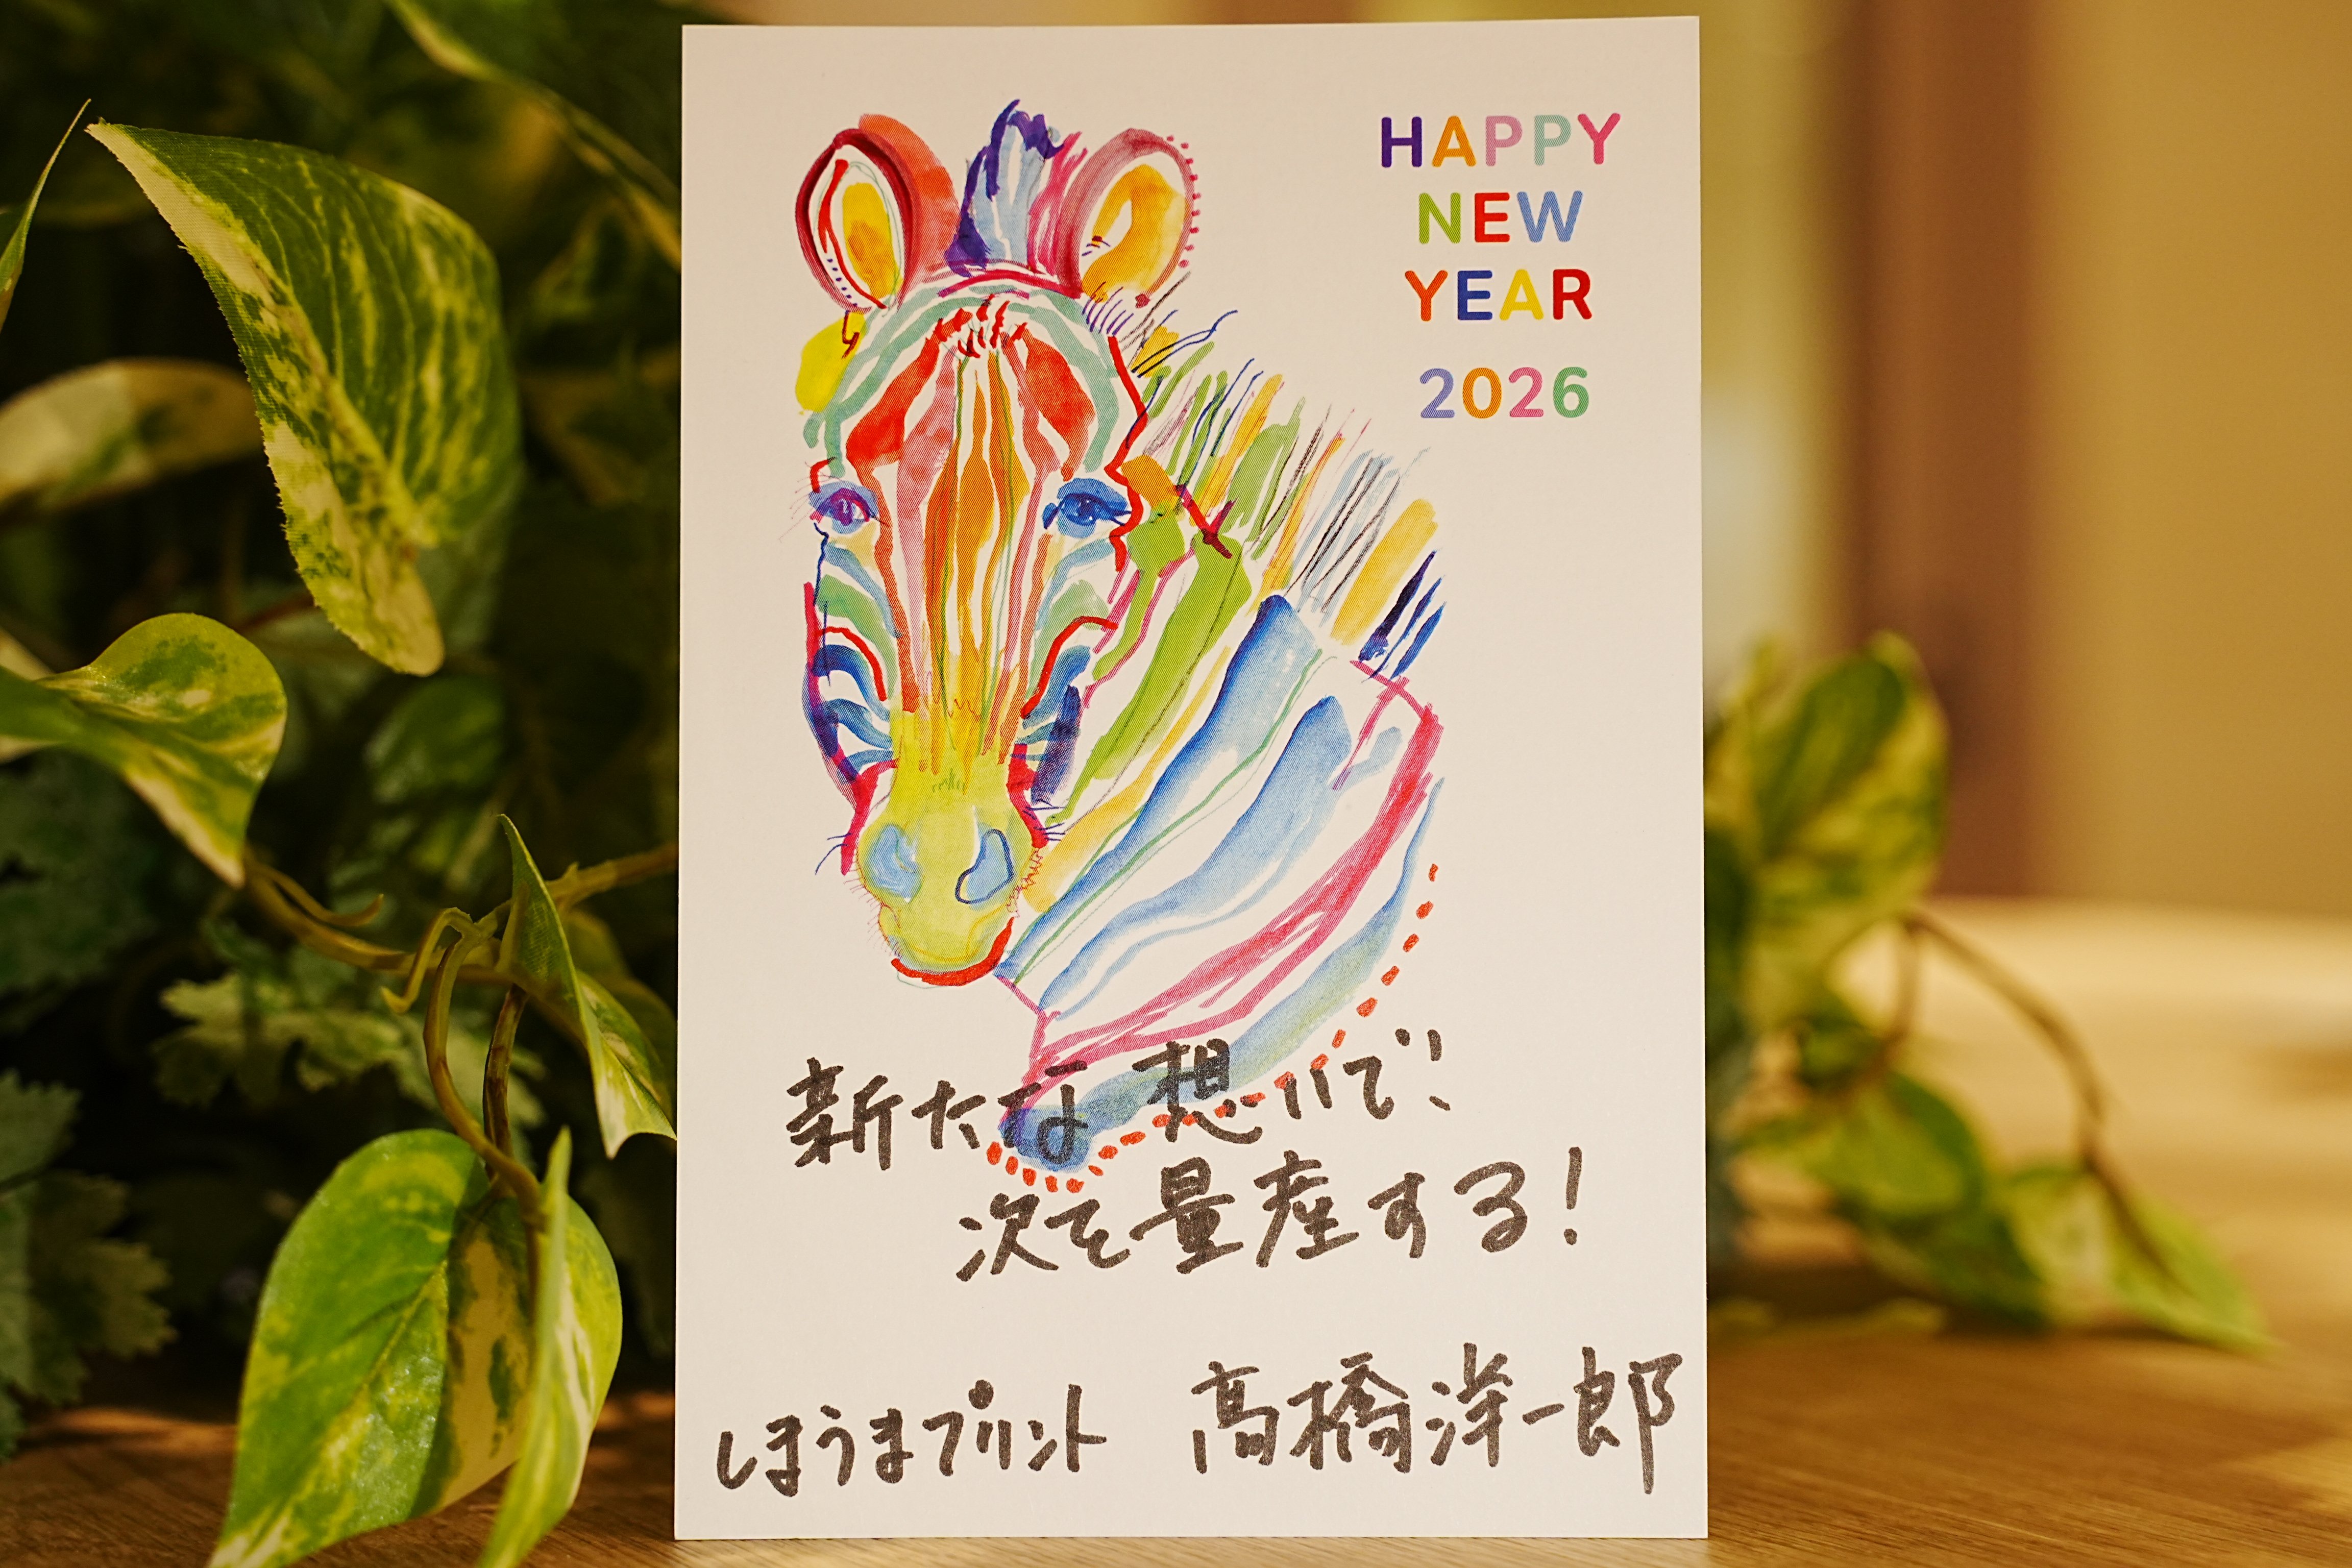 HAPPY
NEW
YEAR
2026
新たな想いで、
次を量産する!
しまうまプリント 高橋洋一郎